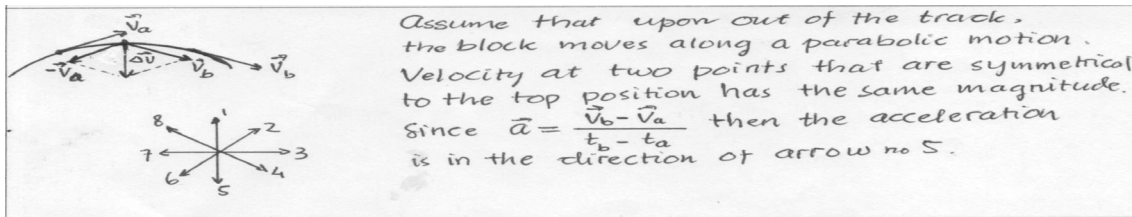 v⃗a
Δv⃗
-v⃗a
v⃗b
v⃗b
1
8
2
7
3
6
4
5
Assume that upon out of the track,
the block moves along a parabolic motion.
Velocity at two points that are symmetrical
to the top position has the same magnitude.
Since a⃗ = (v⃗b - v⃗a)/(tb - ta) then the acceleration
is in the direction of arrow no 5.